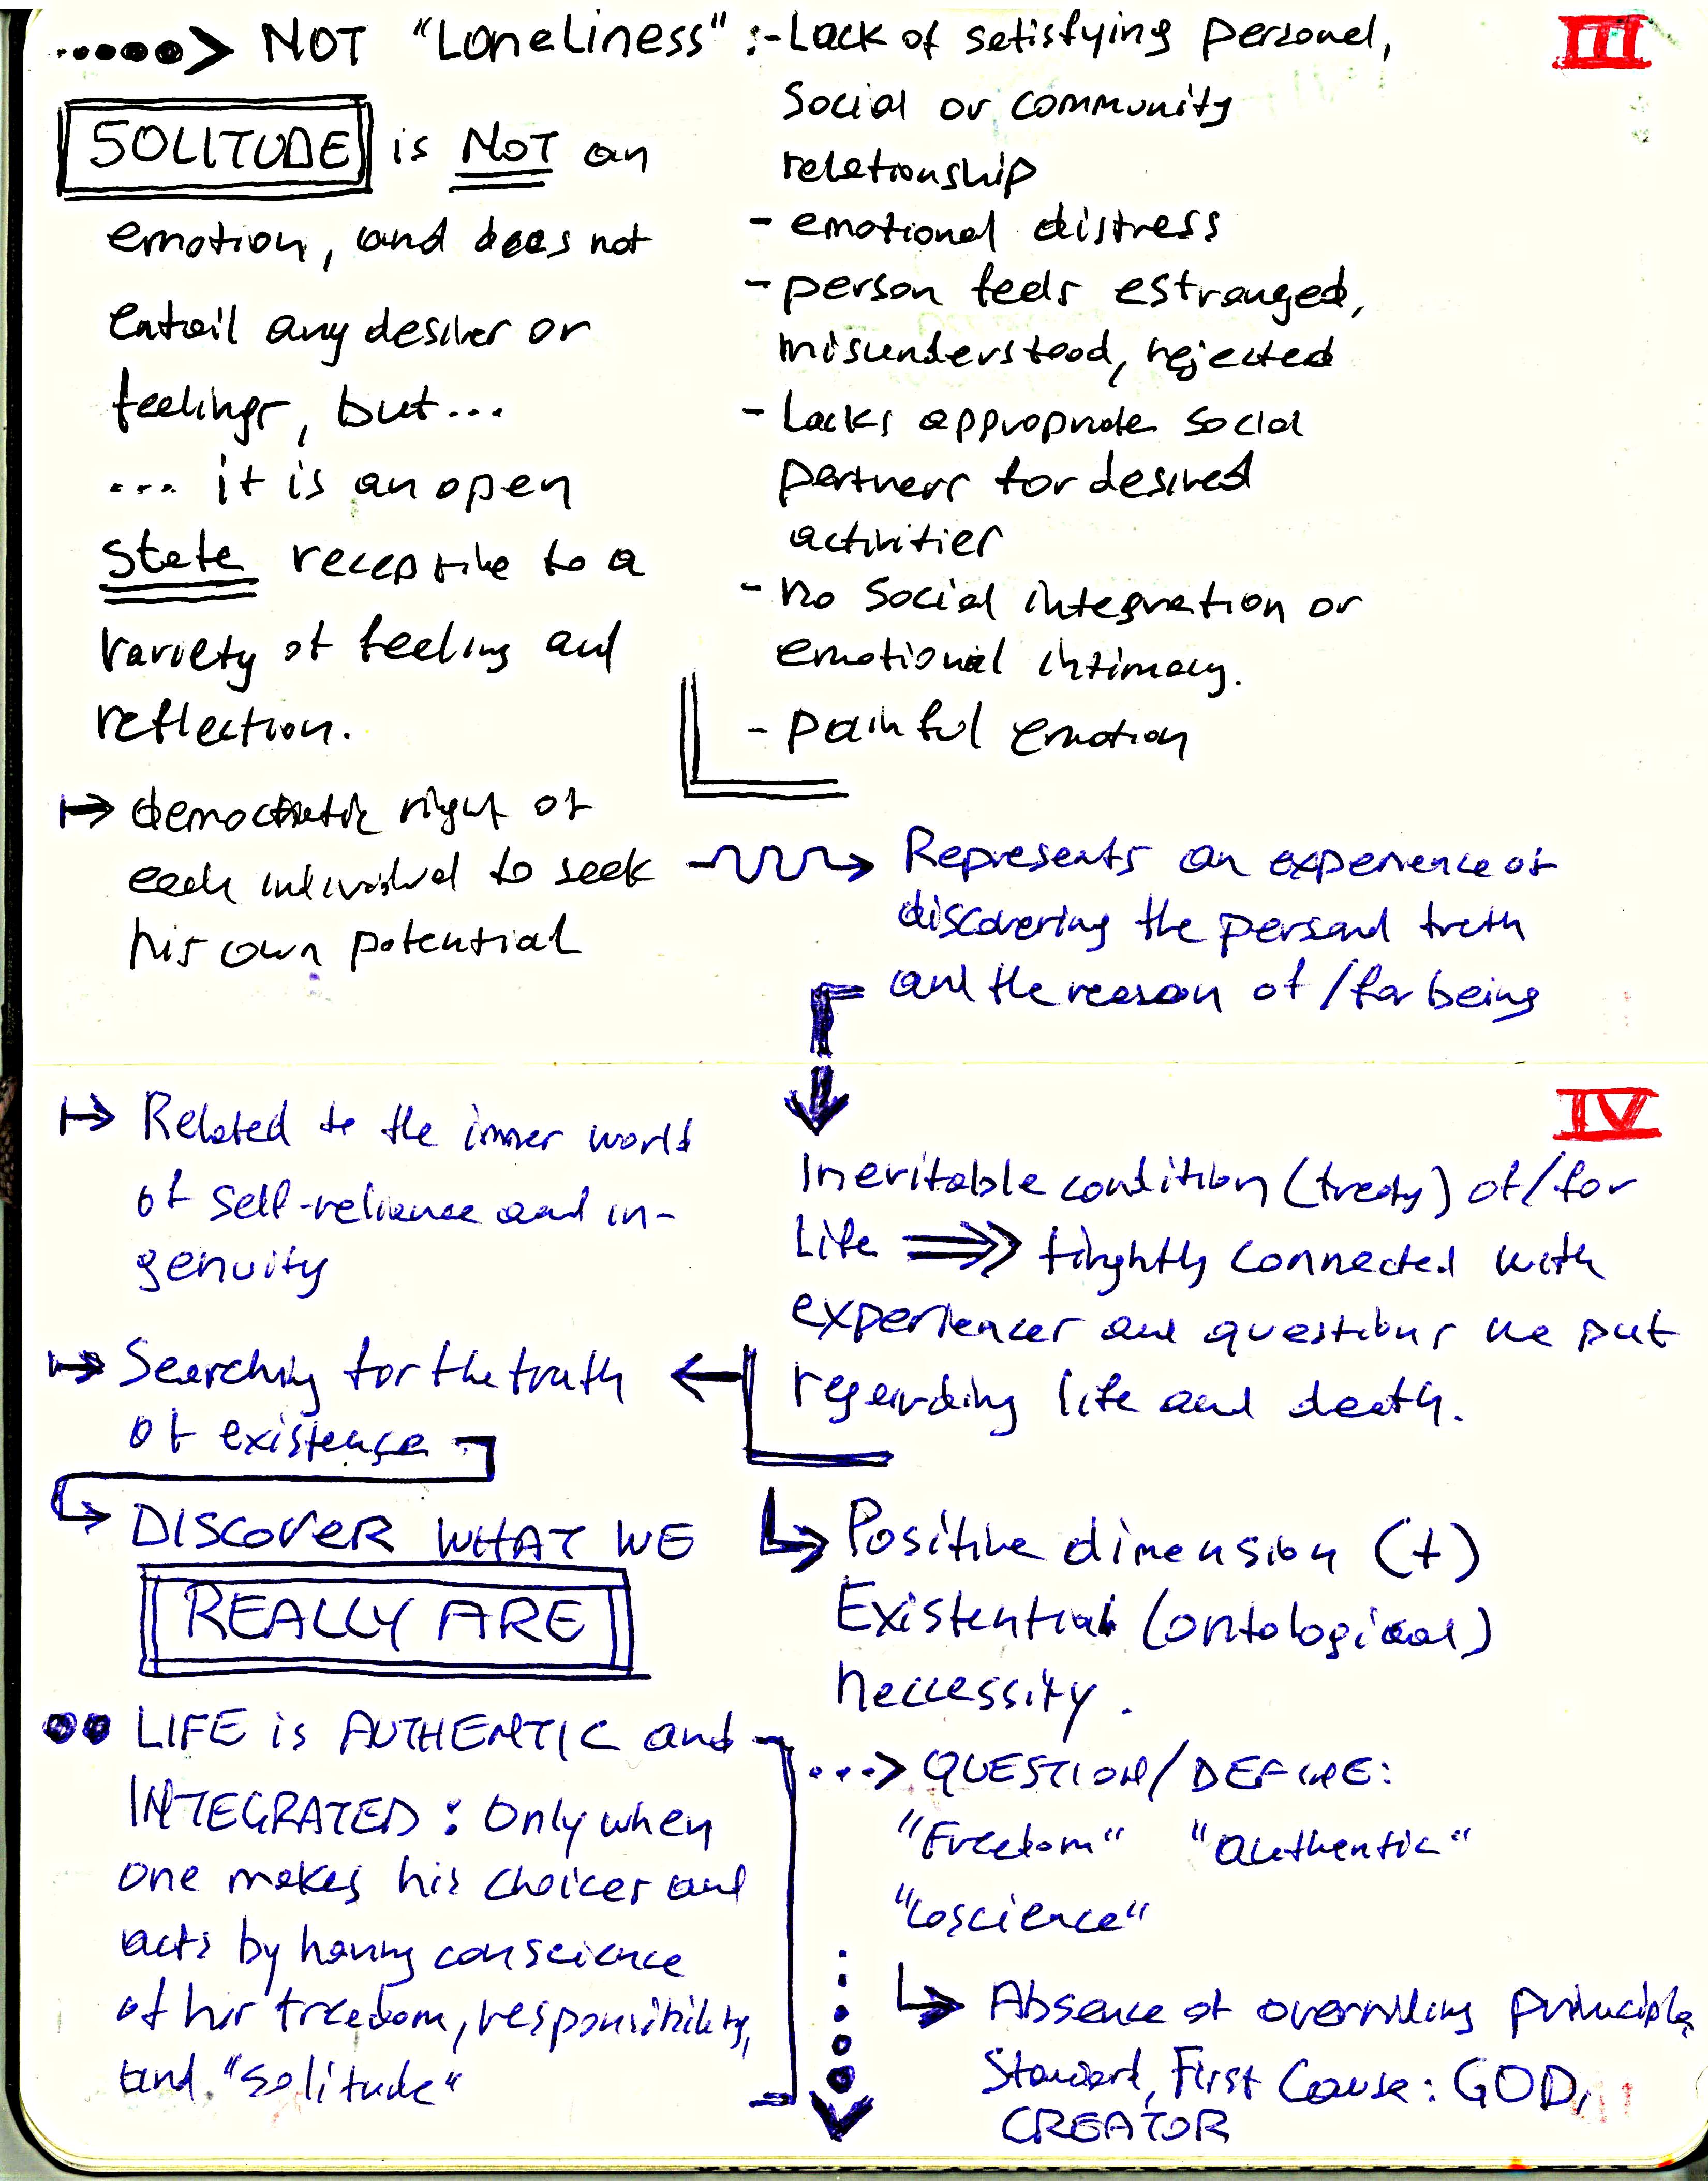 NOT "LoneLiness" :-Lack of setisfying personel,
III
Social or community
reletionship
- emotional distress
- person feels estranged,
misunderstood, rejected
- Lacks appropriate social
pertners for desired
activities
- no Social integration or
emotional intimacy.
- painful emotion
SOLITUDE is NOT an
emotion, and does not
entail any desires or
feelings, but...
... it is an open
state receptive to a
variety of feeling and
reflection.
democratic right of
each individual to seek
his own potential
Represents an experience of
discovering the personal truth
and the reason of /for being
IV
Related to the inner world
of self-reliance and in-
genuity
Inevitable condition (treaty) of/for
Life tinghtly connected with
experiences and questions we put
regarding life and death.
Searching for the truth
of existence
DISCOVER WHAT WE
REALLY ARE
Positive dimension (+)
Existential (ontological)
neccessity.
LIFE is AUTHENTIC and
INTEGRATED: Only when
one makes his choices and
acts by having conscience
of his freedom, responsibility,
and "Solitude"
QUESTION/DEFINE:
"Freedom" "authentic"
"Coscience"
Absence of overruling principle,
Standard, First Cause: GOD,
CREATOR